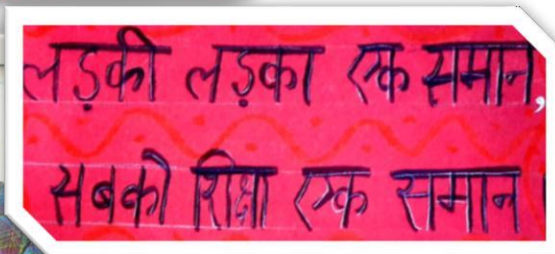 लड़की लड़का एक समान,
सबको शिक्षा एक समान।